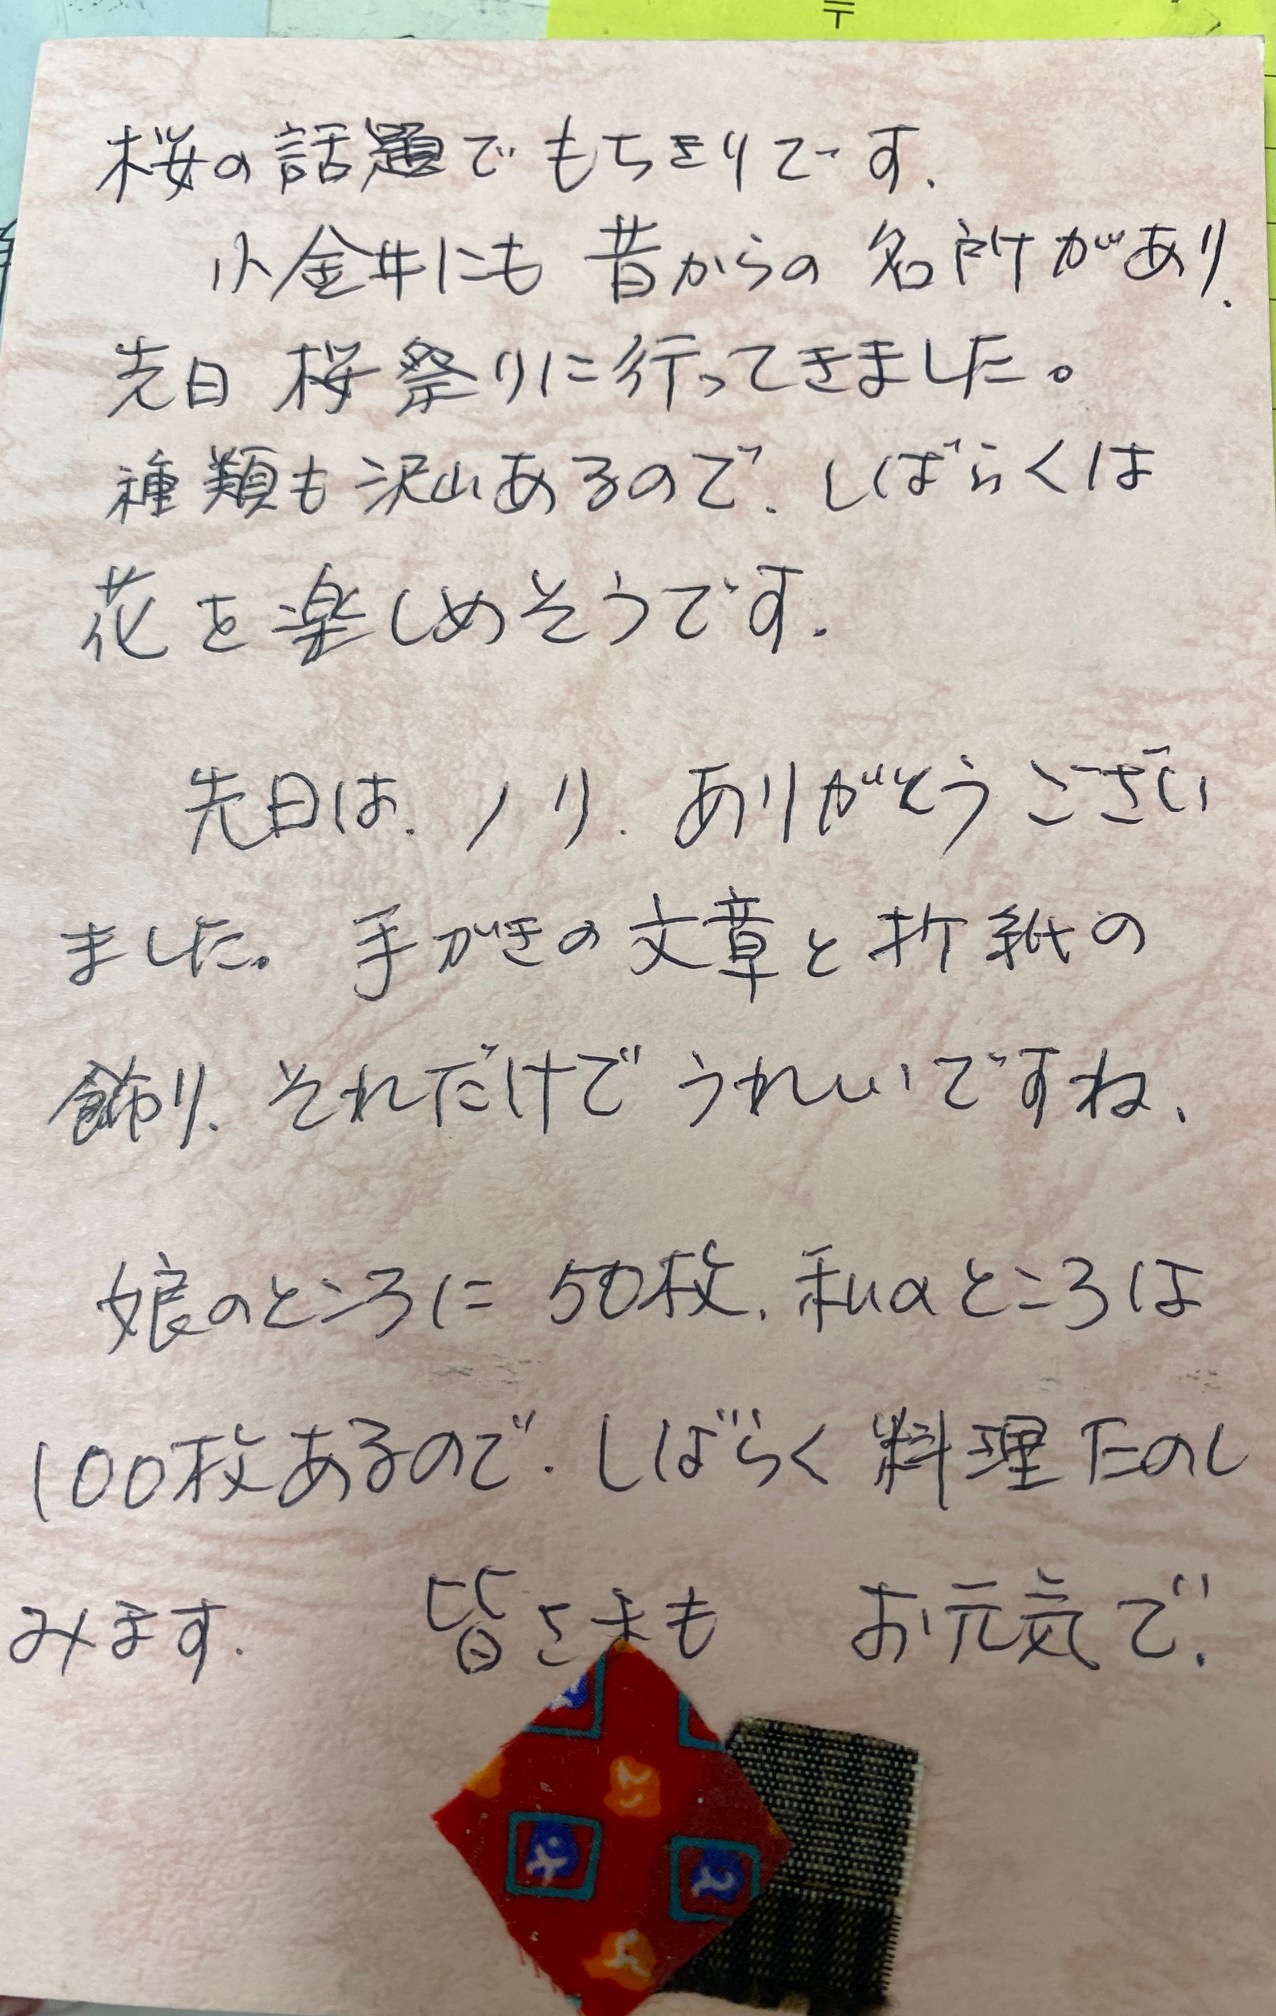 桜の話題でもちきりです.
小金井にも 昔からの 名所があり、
先日 桜祭りに行ってきました。
種類も沢山あるので、しばらくは
花を楽しめそうです.
先日は、ノリ、ありがとうござい
ました。手がきの文章と折紙の
飾り、それだけでうれしいですね、
娘のところに 50枚、私のところは
100枚あるので、しばらく 料理たのし
みます. 皆さまも お元気で、
〒